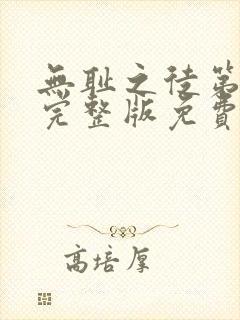 無耻之徒第
完整版免費
高培厚